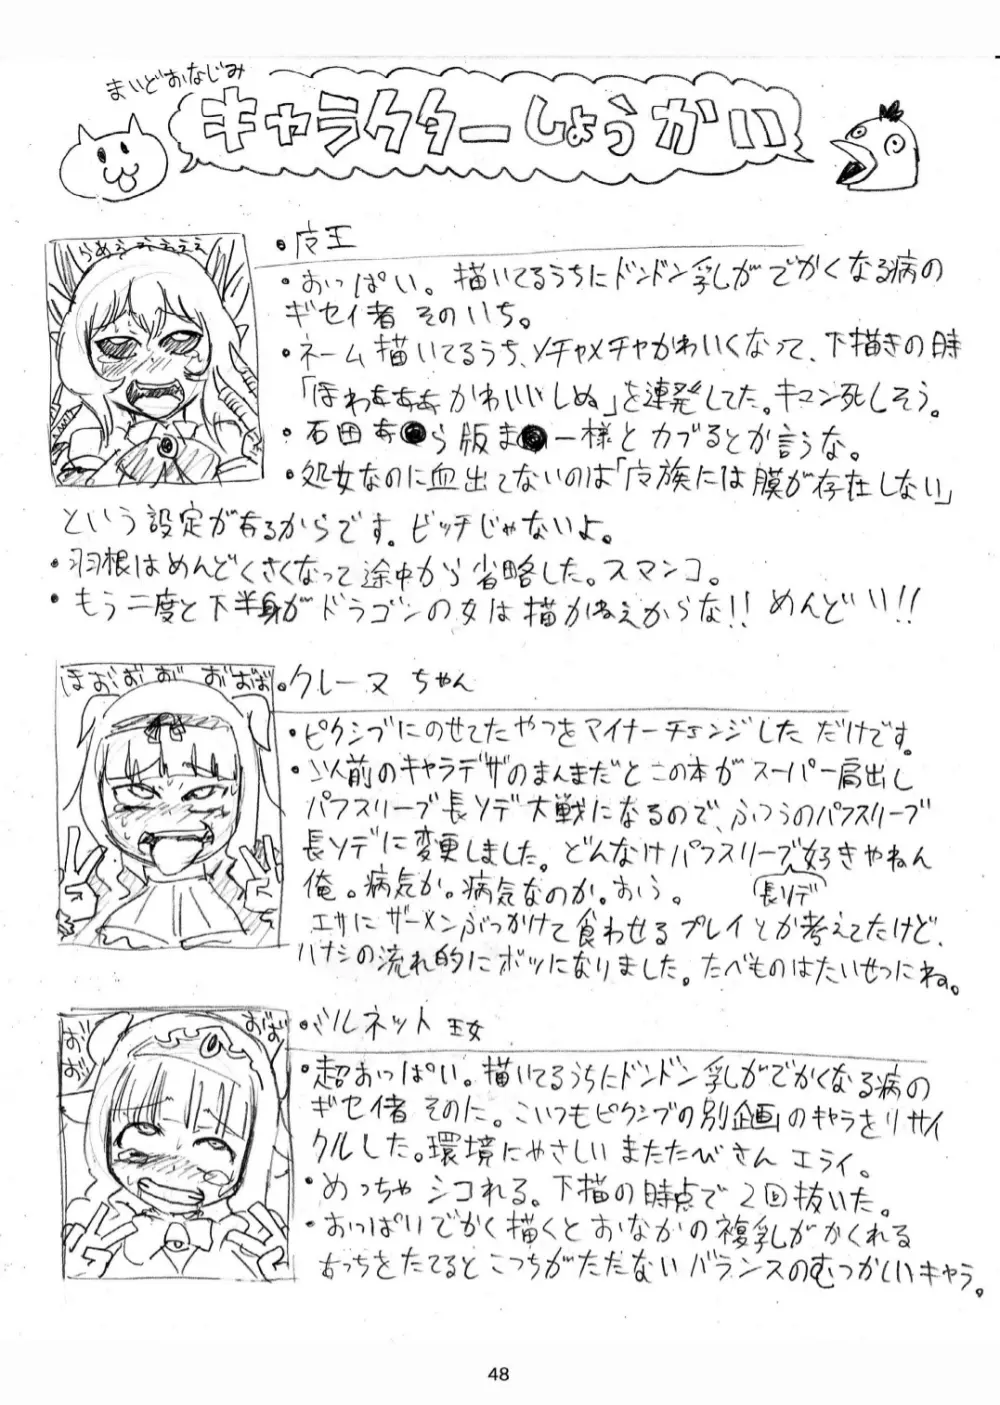 まいどおなじみ
キャラクターしょうかい
らめぇぇぇぇぇ
・皮王
・おっぱい。描いてるうちにドンドン乳がでかくなる病の
ギセイ者 そのいち。
・ネーム描いてるうち、メチャメチャかわいくなって、下描きの時
「ほわぁぁぁかわいいしぬ」を連発してた。キュン死しそう。
・石田あ●ら版ま●ー様とカブるとか言うな。
・処女なのに血出てないのは「皮族には膜が存在しない」
という設定があるからです。ビッチじゃないよ。
・羽根はめんどくさくなって途中から省略した。スマンコ。
・もう二度と下半身がドラゴンの女は描かねえからな!! めんどい!!
ほおおお おおば
・クレーヌちゃん
・ピクシブにのせてたやつをマイナーチェンジしただけです。
・以前のキャラデザのまんまだとこの本がスーパー肩出し
パフスリーブ長ソデ大戦になるので、ふつうのパフスリーブ
長ソデに変更しました。どんなけパフスリーブ好きやねん
長ソデ
俺。病気か。病気なのか。おう。
エサにザーメンぶっかけて食わせるプレイとか考えてたけど、
ハナシの流れ的にボツになりました。たべものはたいせつにね。
おおば
おお
・バルネット 王女
・超おっぱい。描いてるうちにドンドン乳がでかくなる病の
ギセイ者 そのに。こいつもピクシブの別企画のキャラをリサイ
クルした。環境にやさしいまたたびさんエライ。
・めっちゃシコれる。下描の時点で2回抜いた。
・おっぱいでかく描くとおなかの複乳がかくれる
あっちをたてるとこっちがたたないバランスのむつかしいキャラ。
48